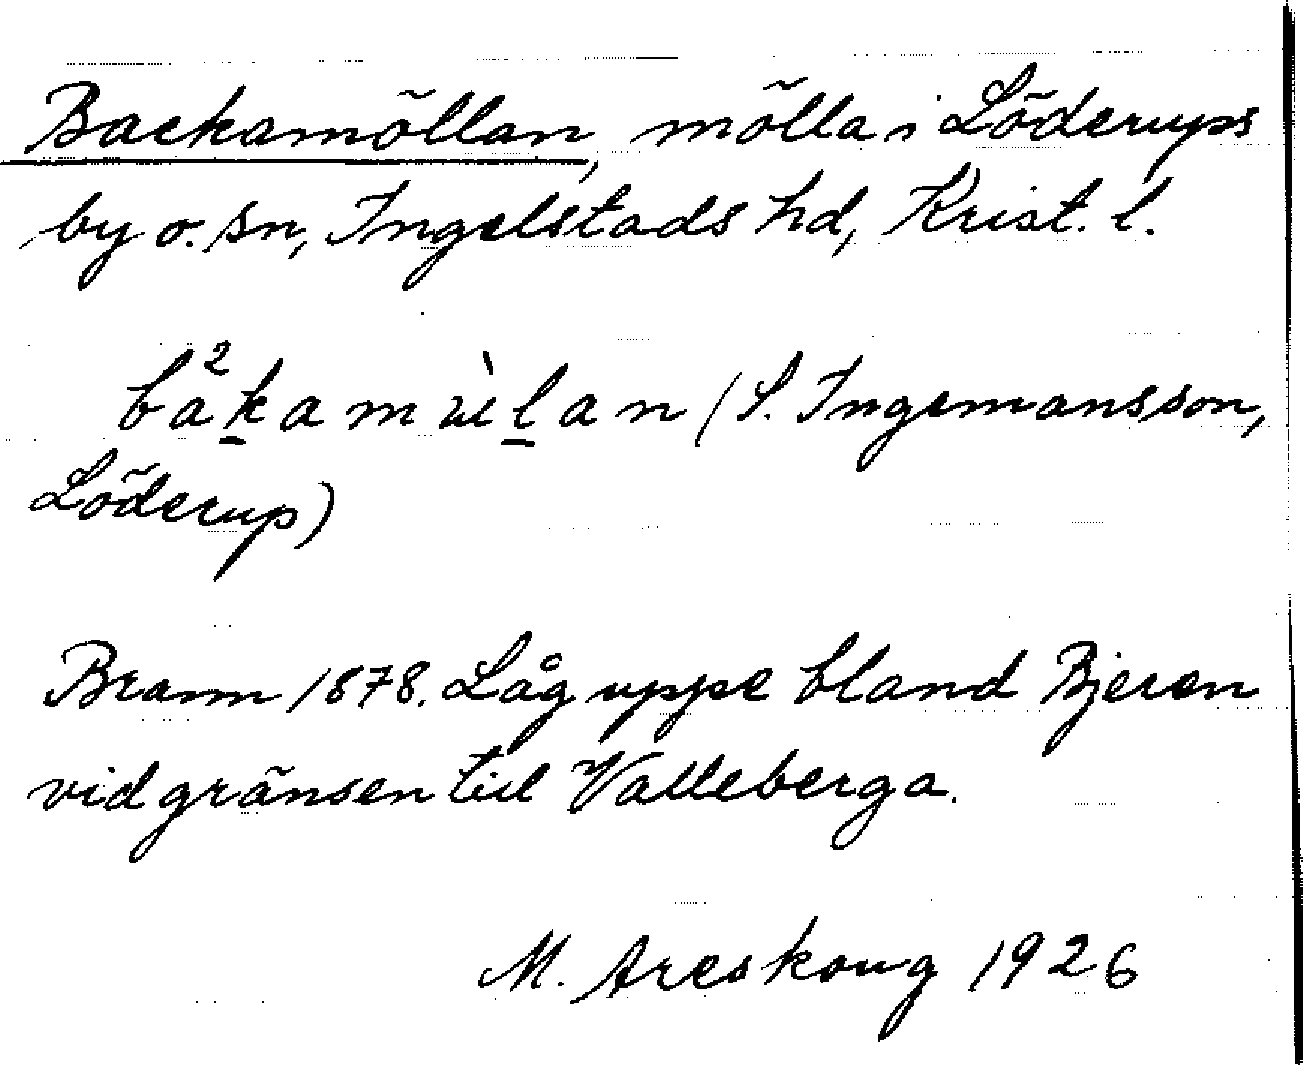 Backamöllan, mölla i Löderups
by o. sn, Ingelstads hd, Krist. l.
ba²kamùlan (S. Ingemansson,
Löderup)
Brann 1878. Låg uppe bland Bjeren
vid gränsen till Valleberga.
M. Areskoug 1926